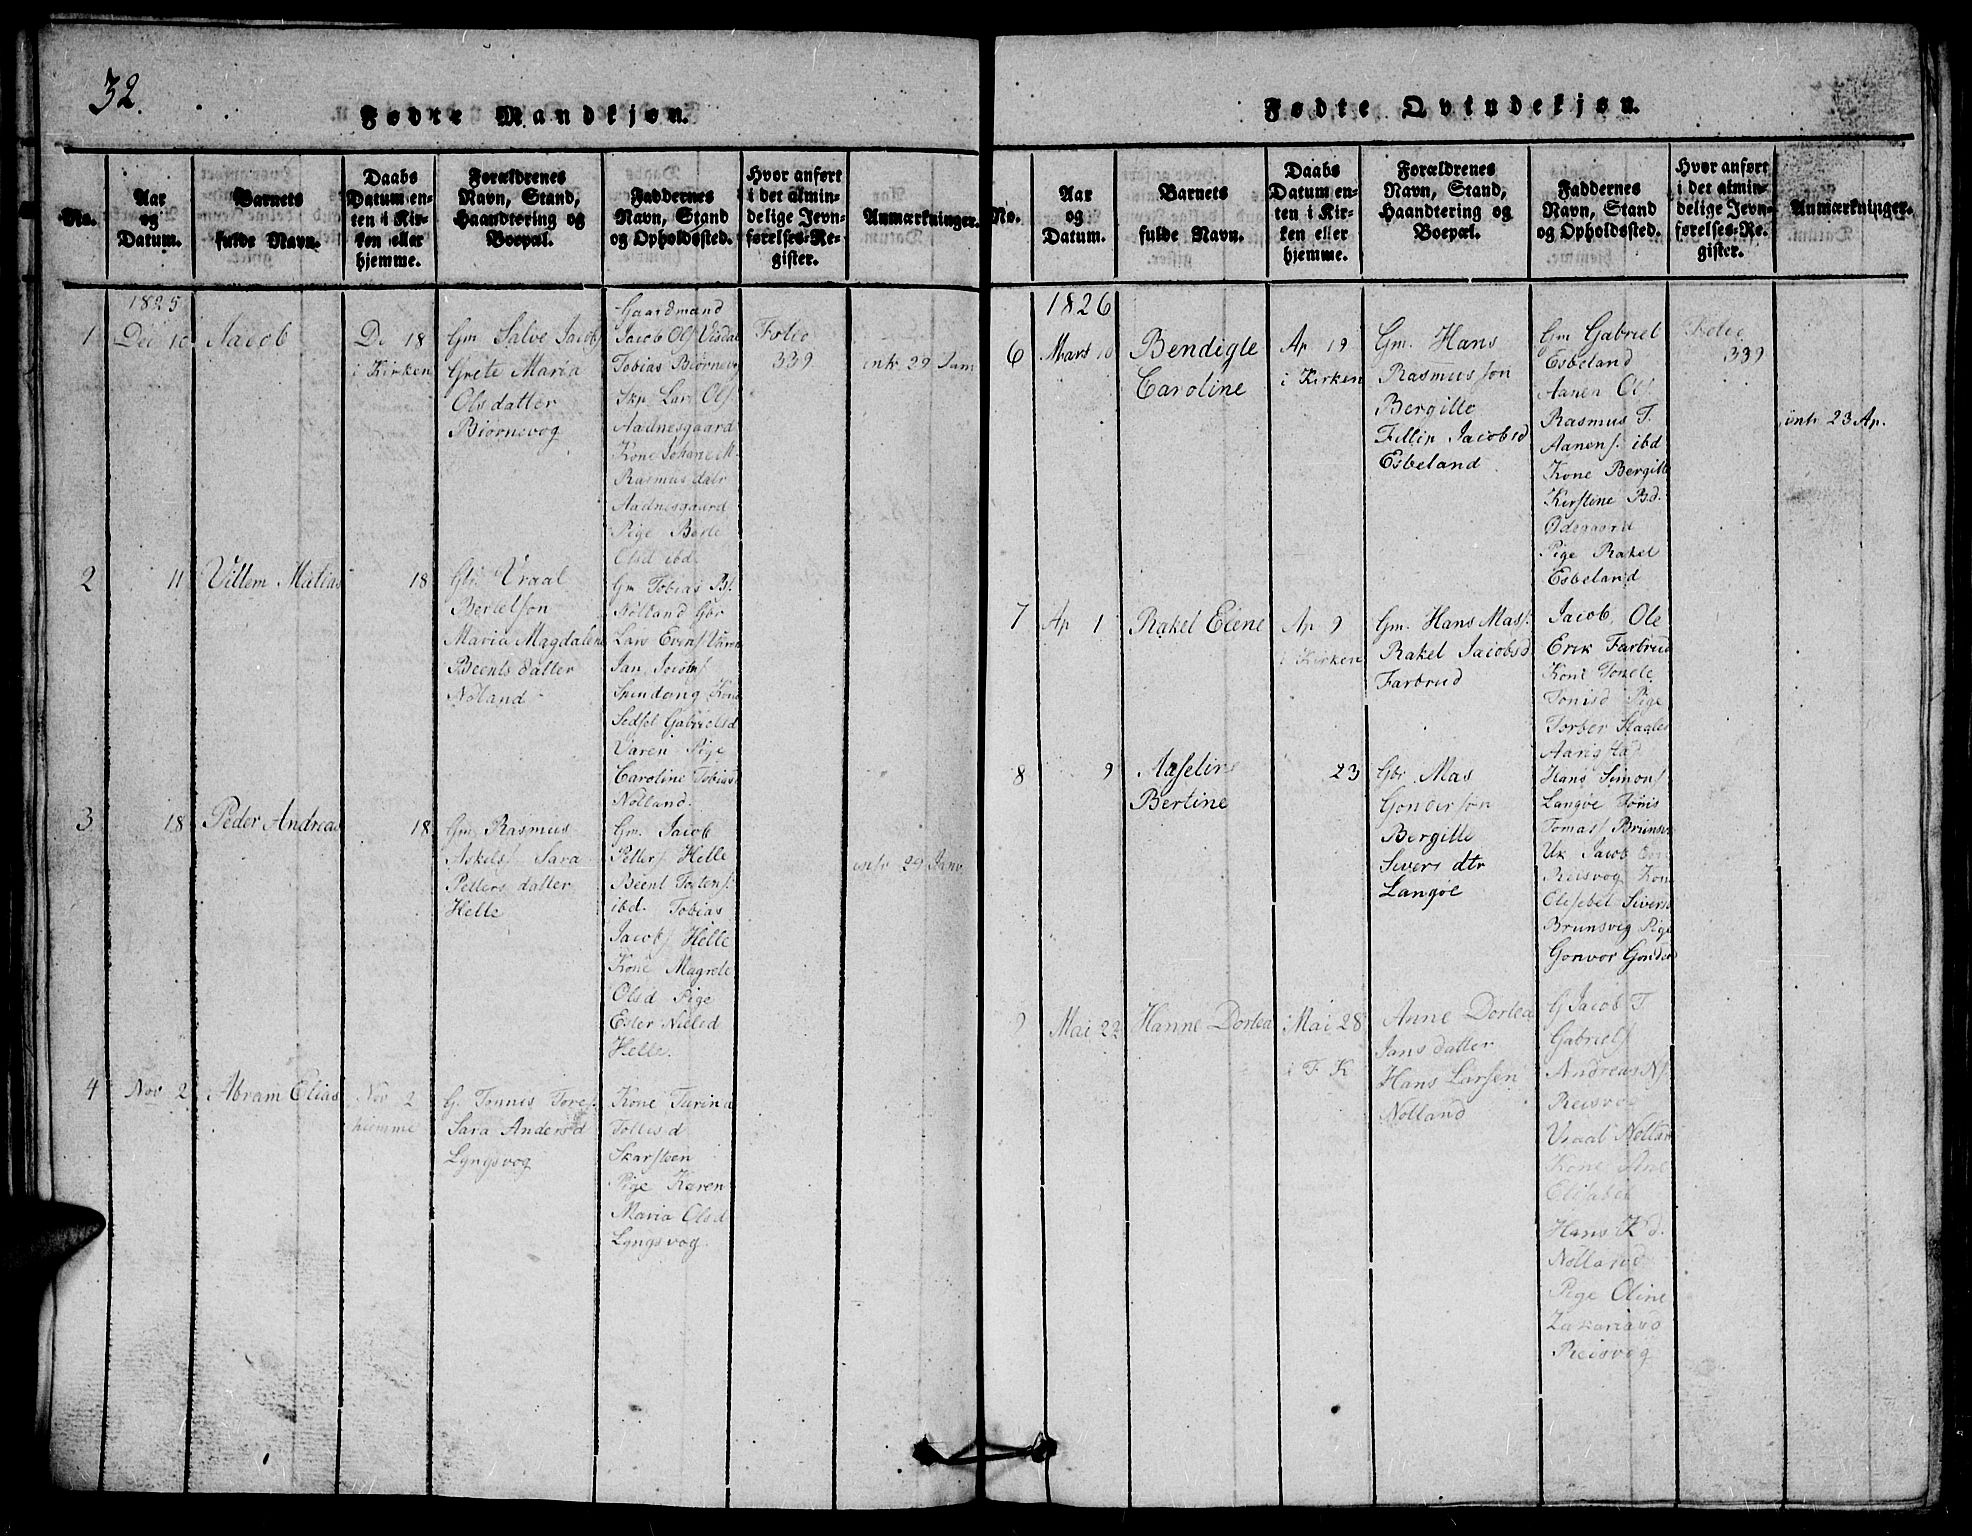 32.
Fødte Mandkjøn.
No.
Aar
og
Datum.
Barnets
fulde Navn.
Daabs
Datum en-
ten i Kir-
ken eller
hjemme.
Forældrenes
Navn, Stand,
Haandtering og
Boepæl.
Faddernes
Navn, Stand
og Opholdssted.
Hvor anført
i det almin-
delige Jevn-
førelses-Re-
gister.
Anmærkninger.
1825
1
Dec 10
Jacob
De 18
i Kirken
Gm Salve Jacobs
Grete Maria
Olsdatter
Biornevog
Gaardmand
Jacob Ols Visdal
Tobias Biornevog
Skp Lars Ols
Aadnesgaard
Kone Johane M
Rasmus datr
Aadnesgaard
Pige Berte
Olsd ibd
Folio
339
intr 29 Jan
2
11
Villem Matias
18
Gbr Vraal
Bertelson
Maria Magdalena
Beents datter
Nøland
Gm Tobias B.
Nølland Gbr
Lars Evens Varen
Jan Jacobs
Spindong Kone
Sedsel Gabrielsd
Varen Pige
Caroline Tobias
Nølland.
3
18
Peder Andreas
18
Gm Rasmus
Askels Sara
Petters datter
Helle
Gm. Jacob
Petters Helle
Beent Tostens
ibd. Tobias
Jacobs Helle
Kone Magrete
Olsd Pige
Ester Nielsd
Helle.
intr 29 Janv
4
Nov 2
Abram Elias
Nov 2
hiemme
G. Tonnes Tores
Sara Andersd
Lyngsvog
Kone Turina
Tollisd
Skarsteen
Pige Karen
Maria Olsd
Lyngsvog.
Fødte Qvindekjøn.
No.
Aar
og
Datum.
Barnets
fulde Navn.
Daabs
Datum en-
ten i Kir-
ken eller
hjemme.
Forældrenes
Navn, Stand,
Haandtering og
Boepæl.
Faddernes
Navn, Stand
og Opholdssted.
Hvor anført
i det almin-
delige Jevn-
førelses-Re-
gister.
Anmærkninger.
1826
6
Mars 10
Bendigte
Caroline
Ap 19
i Kirken
Gm. Hans
Rasmusson
Bergitte
Fillip Jacobsd
Esbeland
Gm Gabriel
Esbeland
Aanen Ols
Rasmus T.
Aanens ibd
Kone Bergitte
Kirstine Bd.
Ødegaard
Pige Rakel
Esbeland
Folio
339
intr 23 Ap.
7
Ap 1
Rakel Elene
Ap 9
i Kirken
Gm. Hans Mas
Rakel Jacobsd
Farbrud
Jacob, Ole
Erik Farbrud
Kone Tonele
Tonisd Pige
Torber Hagles
Aarigstad
8
9
Aaseline
Bertine
23
Gbr Mas
Gondersøn
Bergitte
Sivers dtr
Langøe
Hans Simons
Langøe Tønis
Tomas Brunsvig
Uk Jacob
Reisvog Kone
Elisebet Sivers
Brunsvig Pige
Gonvor Gonders
9
Mai 22
Hanne Dortea
Mai 28
i F K
Anne Dortea
Jans datter
Hans Larsen
Nolland
G Jacob T
Gabriels
Andreas Ns
Reisvog
Vraal Nolland
Kone Ane
Elisabet
Hans K d.
Nolland
Pige Oline
Zakarias
Reisvog